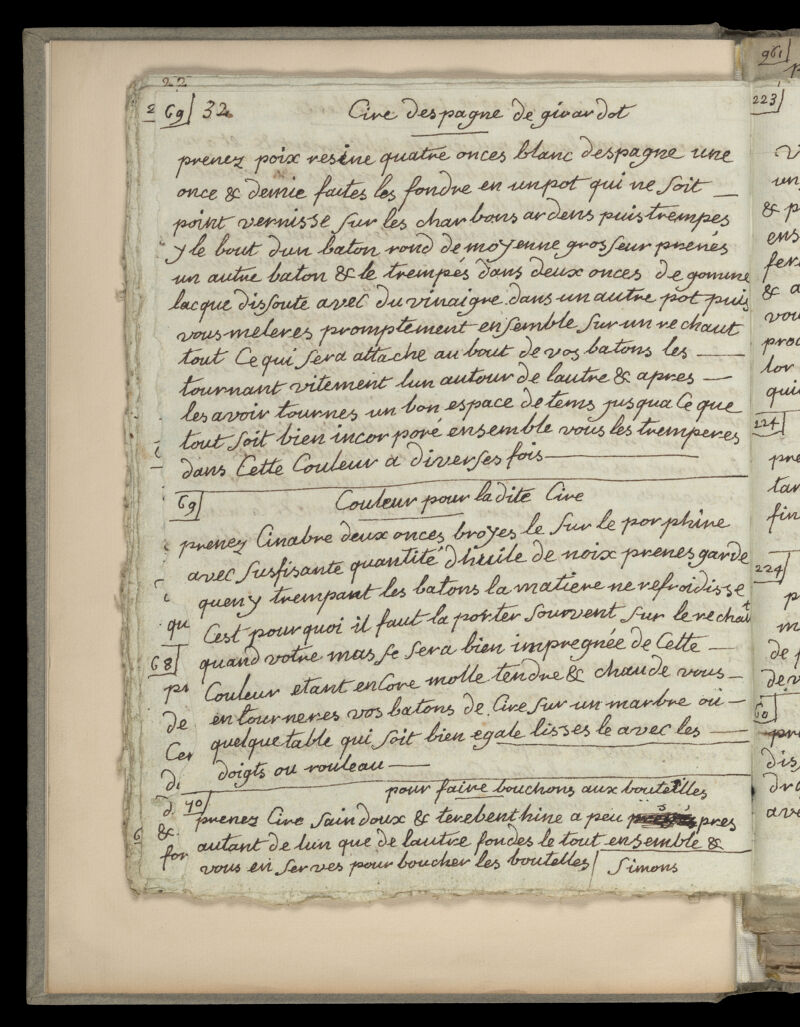 22
69 32 Cire despagne de girardot
prenez poix resine quatre onces blanc despagne une
once & demie faites les fondre en un pot qui ne soit
point vernisse sur les charbons ardens puis trempes
y le bout dun baton rond de moyenne grosseur prenés
un autre baton & le trempés dans deux onces de gomme
lacque dissoute avec du vinaigre dans un autre pot puis
vous meleres promptement ensemble sur un rechaut
tout Ce qui sera attache au bout de vos batons les
tournant vitement lun autour de lautre & apres
les avoir tournes un bon espace de tems jusqua Ce que
tout soit bien incorporé ensemble vous les tremperes
dans Cette Couleur a diverses fois
69 Couleur pour la dite Cire
prenez Cinabre deux onces broyes le sur le porphire
avec susfisante quantité dhuile de noix prenes garde
queny trempant les batons la matiere ne refroidisse
Cest pourquoi il faut la porter sourvent sur le rechaut
quand votre masse sera bien impregnée de Cette
Couleur etant encore molle tendre & chaude vous
en tourneres vos batons de Cire sur un marbre ou
quelque table qui soit bien egale lisses le avec les
doigts ou rouleau
70 pour faire bouchons aux bouteilles
prenez Cire saindoux & terebenthine a peu pres
autant de lun que de lautre fondes le tout ensemble &
vous en serves pour boucher les boutelles Simons
qu
68
pr
de
Cer
di
d
&
for
961
223
un
& p
ens
fer
& a
vou
proc
lor
qui
224
pre
tar
fin
224
p
m
de p
de v
60
pre
dis
dra
ave